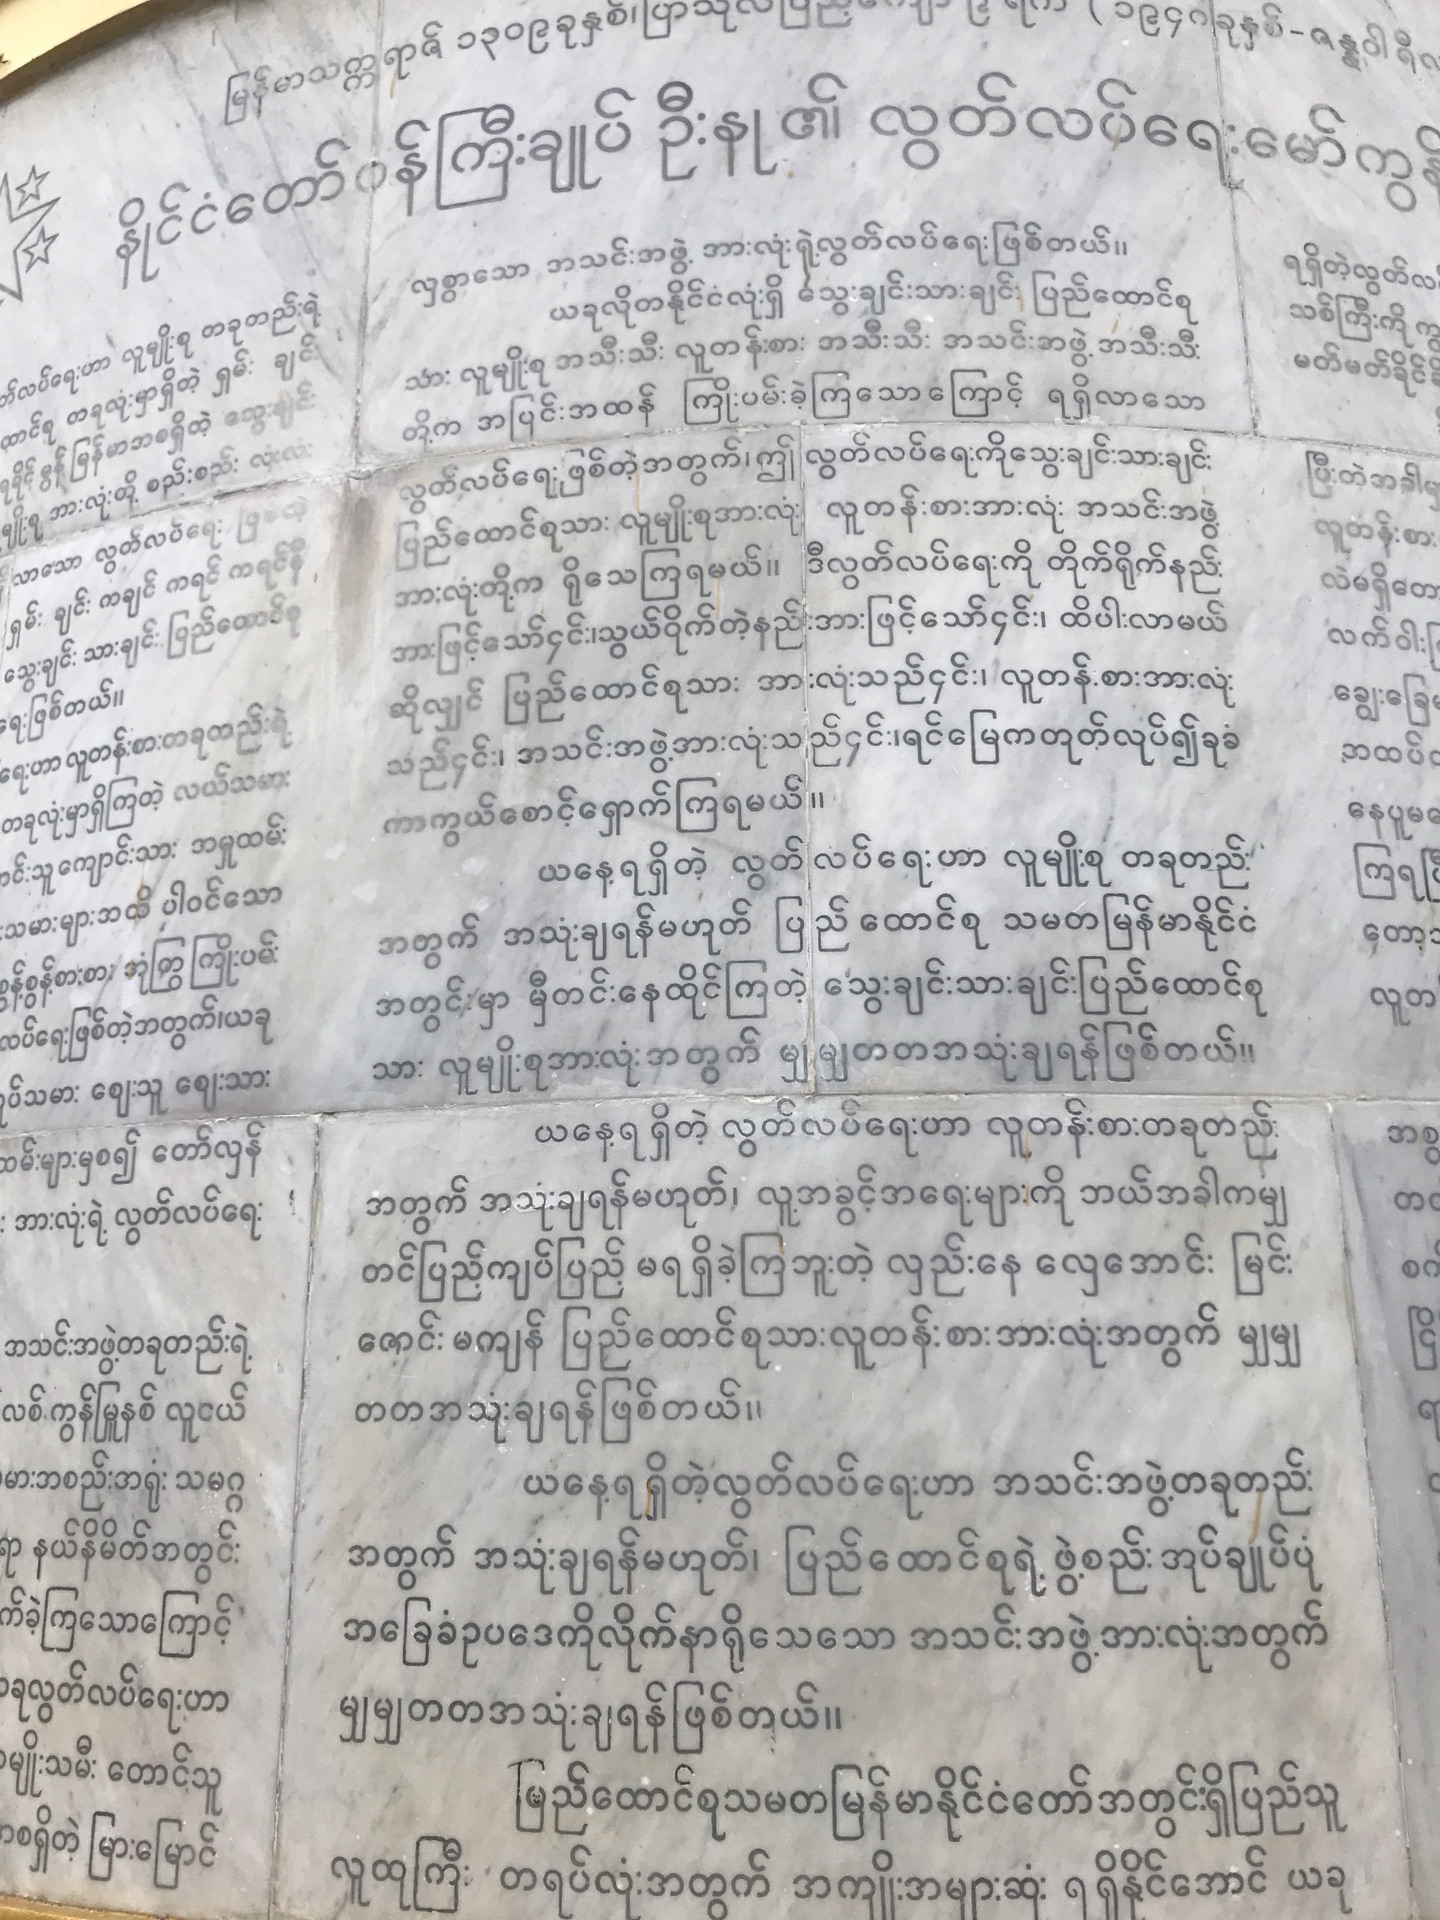 မြန်မာသက္ကရာဇ် ၁၃၀၉ခုနှစ်၊ပြာသိုလပြည့်ကျော် ၉ ရက် (၁၉၄၈ခုနှစ်-ဇန္နဝါရီလ
နိုင်ငံတော်ဝန်ကြီးချုပ် ဦးနု၏ လွတ်လပ်ရေးမော်ကွန်း
လပ်ရေးဟာ လူမျိုးစု တခုတည်းရဲ့
တခုလုံးမှာရှိတဲ့ ရှမ်း ချင်း
မြန်မာအစရှိတဲ့ သွေးချင်း
အားလုံးတို့ စည်းစည်း လုံးလုံး
လာသော လွတ်လပ်ရေး ဖြစ်တဲ့
ရှမ်း ချင်း ကချင် ကရင် ကရင်နီ
သွေးချင်း သားချင်း ပြည်ထောင်စု
ရေးဖြစ်တယ်။
ရေးဟာ လူတန်းစားတခုတည်းရဲ့
တခုလုံးမှာရှိကြတဲ့ လယ်သမား
ကျောင်းသား အမှုထမ်း
သမားများအထိ ပါဝင်သော
ကြိုးပမ်း
လပ်ရေးဖြစ်တဲ့အတွက်၊ယခု
လုပ်သမား ဈေးသူ ဈေးသား
ထမ်းများမှစ၍ တော်လှန်
အားလုံးရဲ့ လွတ်လပ်ရေး
အသင်းအဖွဲ့တခုတည်းရဲ့
လစ်.ကွန်မြူနစ် လူငယ်
အစည်းအရုံး သမဂ္ဂ
နယ်နိမိတ်အတွင်း
ခဲ့ကြသောကြောင့်
ယခုလွတ်လပ်ရေးဟာ
မျိုးသမီး တောင်သူ
စရှိတဲ့ မြားမြောင်
လှစွာသော အသင်းအဖွဲ့ အားလုံးရဲ့လွတ်လပ်ရေးဖြစ်တယ်။
ယခုလိုတနိုင်ငံလုံးရှိ သွေးချင်းသားချင်း ပြည်ထောင်စု
သား လူမျိုးစု အသီးသီး လူတန်းစား အသီးသီး အသင်းအဖွဲ့ အသီးသီး
တို့က အပြင်းအထန် ကြိုးပမ်းခဲ့ကြသောကြောင့် ရရှိလာသော
လွတ်လပ်ရေးဖြစ်တဲ့အတွက်၊ဤ လွတ်လပ်ရေးကိုသွေးချင်းသားချင်း
ပြည်ထောင်စုသား လူမျိုးစုအားလုံး လူတန်းစားအားလုံး အသင်းအဖွဲ့
အားလုံးတို့က ရိုသေကြရမယ်။ ဒီလွတ်လပ်ရေးကို တိုက်ရိုက်နည်း
အားဖြင့်သော်၎င်း၊သွယ်ဝိုက်တဲ့နည်းအားဖြင့်သော်၎င်း၊ ထိပါးလာမယ်
ဆိုလျှင် ပြည်ထောင်စုသား အားလုံးသည်၎င်း၊ လူတန်းစားအားလုံး
သည်၎င်း၊ အသင်းအဖွဲ့အားလုံးသည်၎င်း၊ရင်မြေကတုတ်လုပ်၍ခုခံ
ကာကွယ်စောင့်ရှောက်ကြရမယ်။
ယနေ့ရရှိတဲ့ လွတ်လပ်ရေးဟာ လူမျိုးစု တခုတည်း
အတွက် အသုံးချရန်မဟုတ် ပြည်ထောင်စု သမတမြန်မာနိုင်ငံ
အတွင်းမှာ မှီတင်းနေထိုင်ကြတဲ့ သွေးချင်းသားချင်းပြည်ထောင်စု
သား လူမျိုးစုအားလုံးအတွက် မျှမျှတတအသုံးချရန်ဖြစ်တယ်။
ယနေ့ရရှိတဲ့ လွတ်လပ်ရေးဟာ လူတန်းစားတခုတည်း
အတွက် အသုံးချရန်မဟုတ်၊ လူ့အခွင့်အရေးများကို ဘယ်အခါကမျှ
တင်ပြည့်ကျပ်ပြည့် မရရှိခဲ့ကြဘူးတဲ့ လှည်းနေ လှေအောင်း မြင်း
ဇောင်း မကျန် ပြည်ထောင်စုသားလူတန်းစားအားလုံးအတွက် မျှမျှ
တတအသုံးချရန်ဖြစ်တယ်။
ယနေ့ရရှိတဲ့လွတ်လပ်ရေးဟာ အသင်းအဖွဲ့တခုတည်း
အတွက် အသုံးချရန်မဟုတ်၊ ပြည်ထောင်စုရဲ့ ဖွဲ့စည်းအုပ်ချုပ်ပုံ
အခြေခံဥပဒေကိုလိုက်နာရိုသေသော အသင်းအဖွဲ့အားလုံးအတွက်
မျှမျှတတအသုံးချရန်ဖြစ်တယ်။
ပြည်ထောင်စုသမတမြန်မာနိုင်ငံတော်အတွင်းရှိပြည်သူ
လူထုကြီး တရပ်လုံးအတွက် အကျိုးအများဆုံး ရရှိနိုင်အောင် ယခု
ရရှိတဲ့လွတ်လပ်
သစ်ကြီးကို
မတ်မတ်ခိုင်ခိုင်
ပြီးတဲ့အခါမှာ
လူတန်းစား
လဲမရှိတော
လက်ဝါးကြီး
ချွေးခြေ
အထပ်
နေပူမ
ကြရပြီ
တော့
လူတ